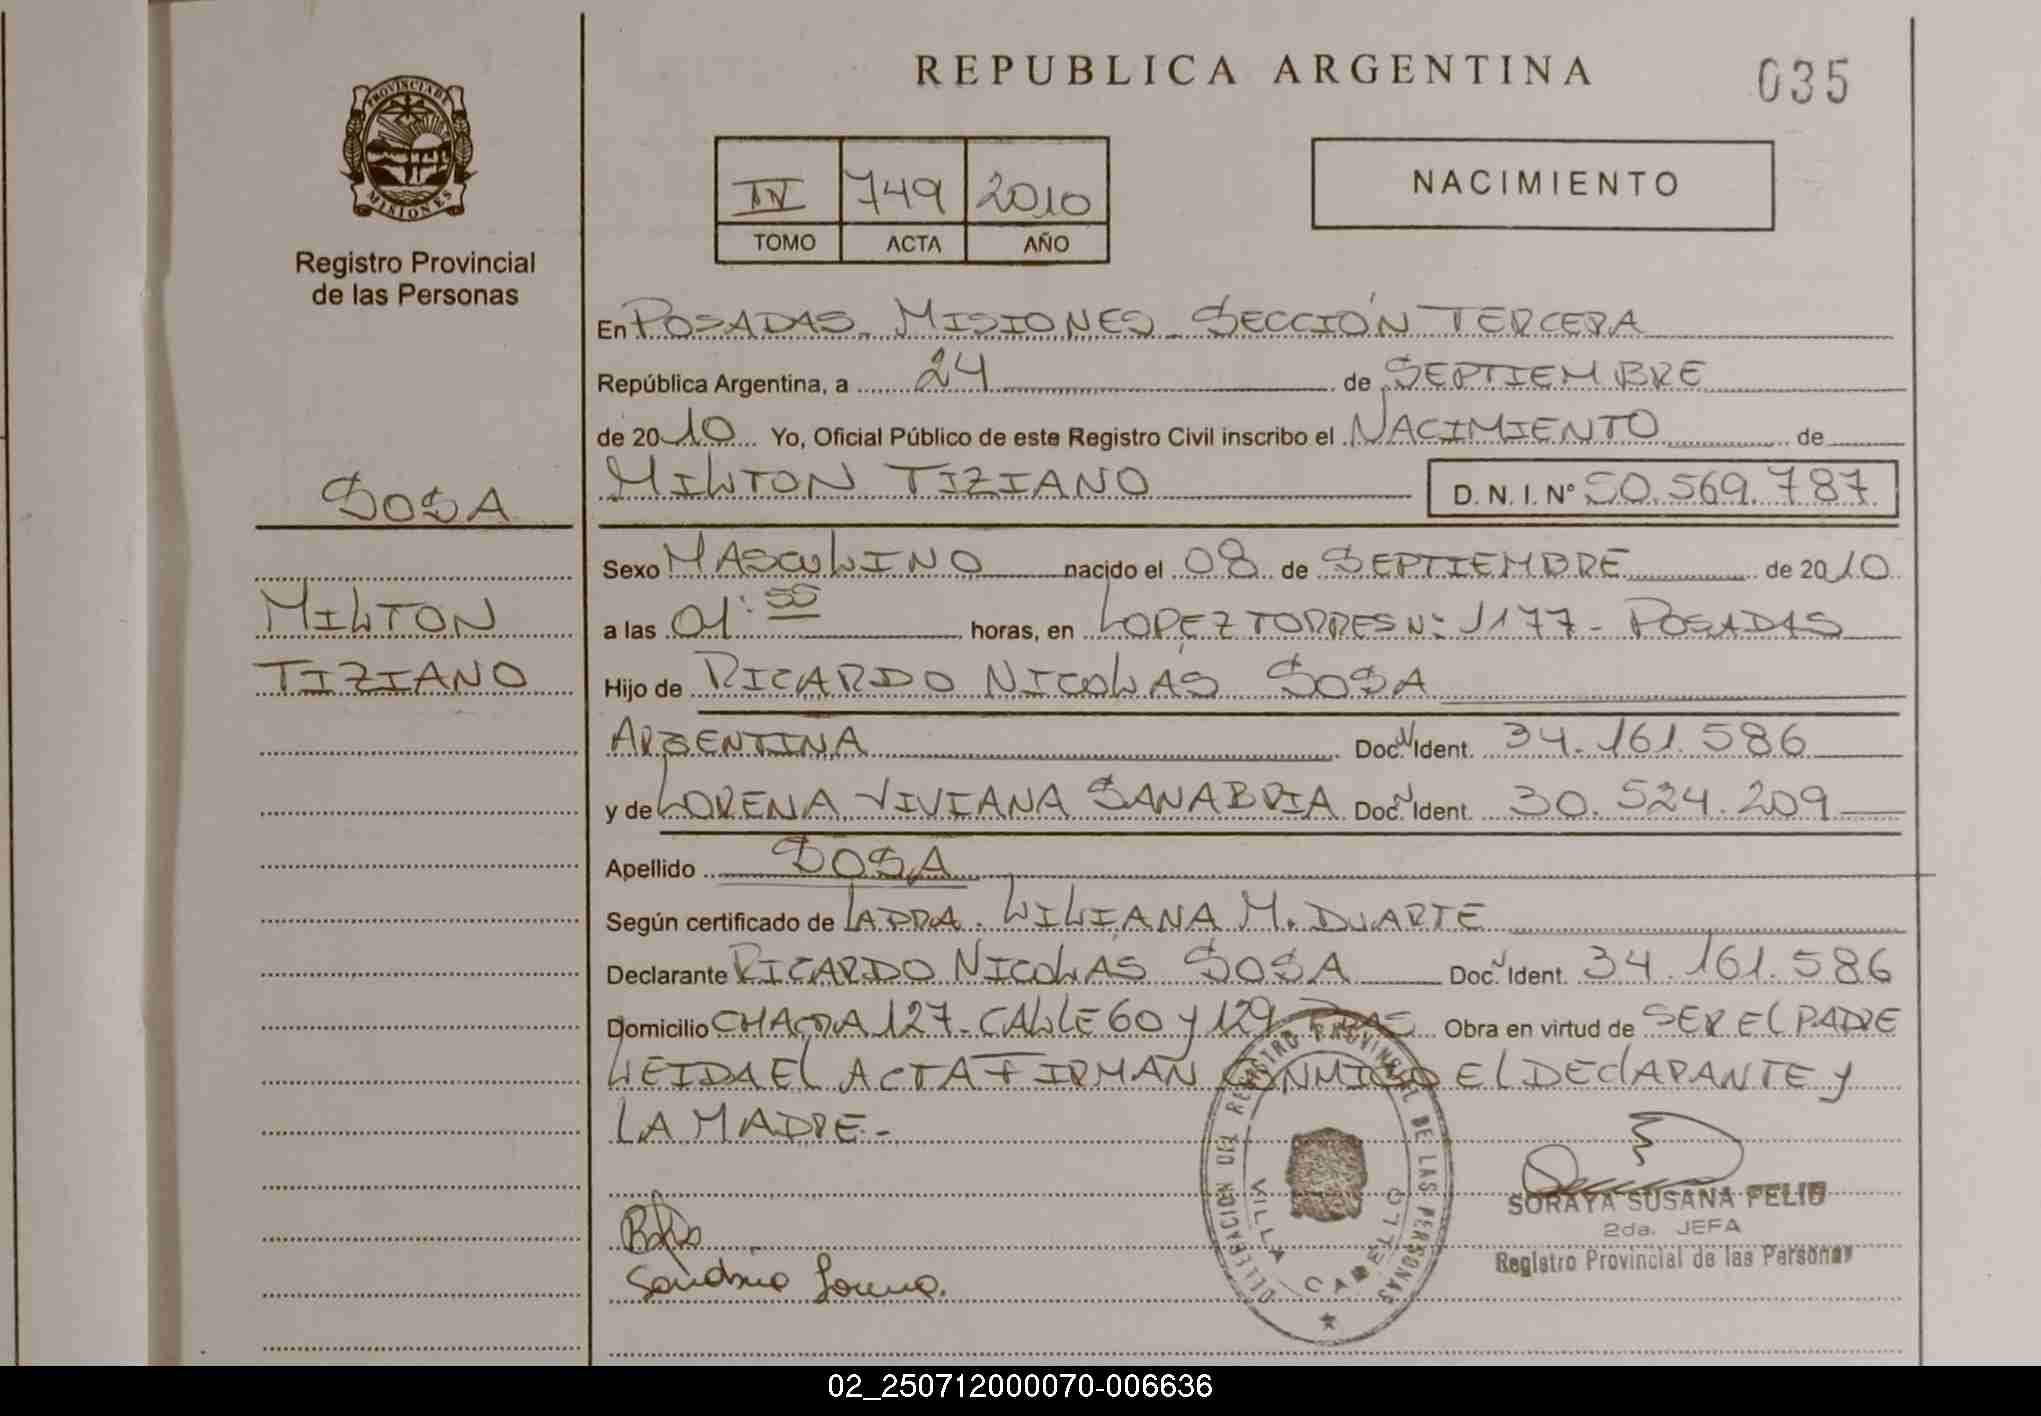 REPUBLICA ARGENTINA
035
PROVINCIA DE
MISIONES
Registro Provincial
de las Personas
IV 749 2010
TOMO ACTA AÑO
NACIMIENTO
En POSADAS - MISIONES - SECCIÓN TERCERA
República Argentina, a 24 de SEPTIEMBRE
de 2010 Yo, Oficial Público de este Registro Civil inscribo el NACIMIENTO de
MILTON TIZIANO D. N. I. Nº 50.569.787
SOSA
MILTON
TIZIANO
Sexo MASCULINO nacido el 08 de SEPTIEMBRE de 2010
a las 01:55 horas, en LOPEZ TORRES Nº 1177 - POSADAS
Hijo de RICARDO NICOLÁS SOSA
ARGENTINA Doc. Ident. 34.161.586
y de LORENA VIVIANA SANABRIA Doc. Ident. 30.524.209
Apellido SOSA
Según certificado de LA DRA. LILIANA M. DUARTE
Declarante RICARDO NICOLÁS SOSA Doc. Ident. 34.161.586
Domicilio CHACRA 127 - CALLE 60 y 129 PDAS Obra en virtud de SER EL PADRE
LEIDA EL ACTA FIRMAN CONMIGO EL DECLARANTE y
LA MADRE.-
DELEGACION DEL REGISTRO PROVINCIAL DE LAS PERSONAS
VILLA CABELLO
SORAYA SUSANA FELIU
2da. JEFA
Registro Provincial de las Personas
02_250712000070-006636